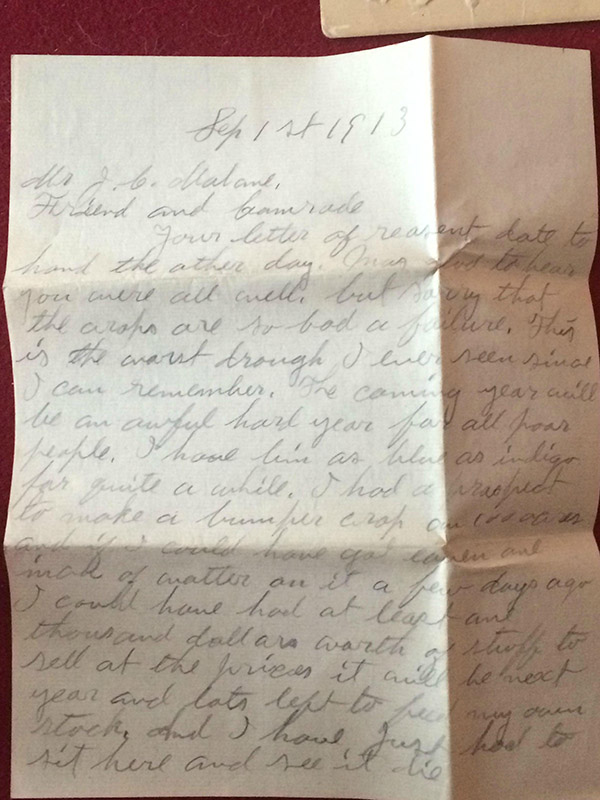 Sep 1st 1913
Mr J. C. Malane,
Friend and Comrade
Your letter of reasent date to
hand the other day. Was glad to hear
you were all well. but sorry that
the crops are so bad a failure. This
is the worst drough I ever seen since
I can remember. The coming year will
be an awful hard year for all poor
people. I have bin as blue as indigo
for quite a while. I had a prospect
to make a bumper crop on
and if I could have got even one
inch of watter on it a few days ago
I could have had at least one
thousand dollars worth of stuff to
sell at the prices it will be next
year and lots left to feed my own
stock. and I have Just had to
sit here and see it die